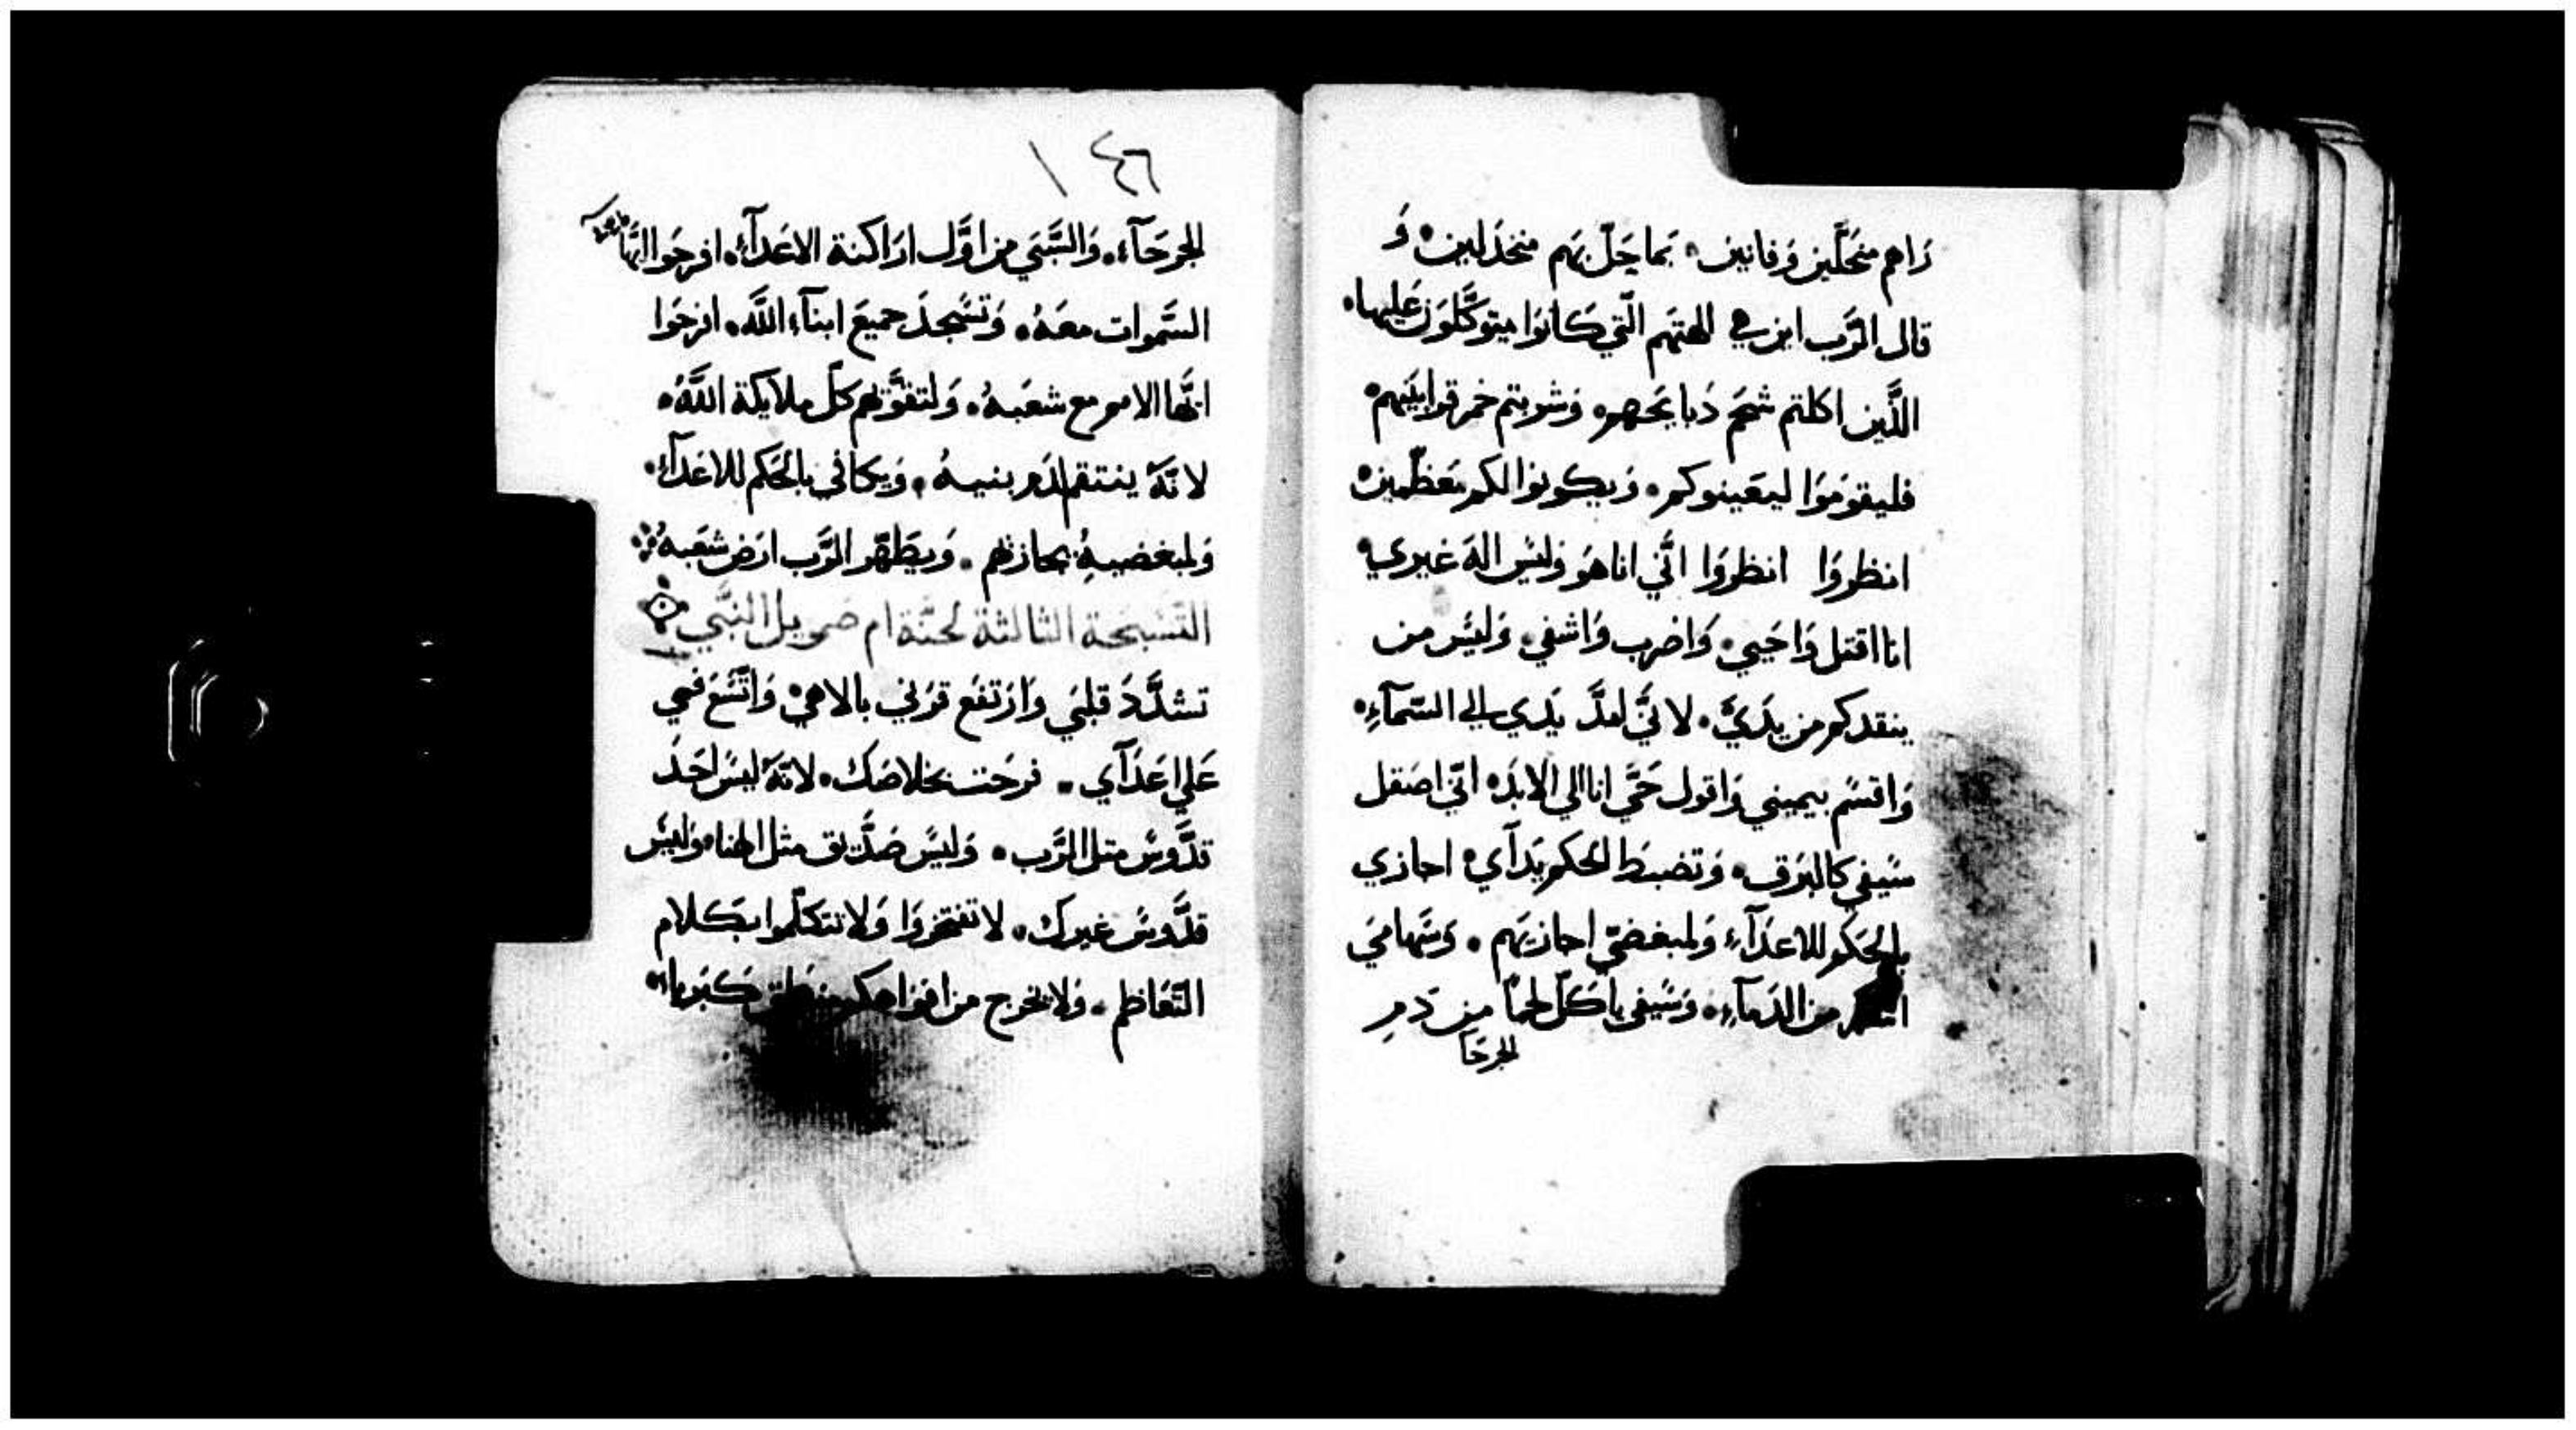 رَاهم منحَلّين وَفانيين. بما حَلّ بهَم منخذلين. وَ
قال الرَّب اين هي الهتهَم الّتي كَانوا ميتوكَّلوَن عَليها.
الذَّين اكلتم شحَم دَبايحَهم. وَشربتم خمر قرابينهم.
فليقوَموَا ليعَينوكم. وَيكونوا لكم معَظّمين.
انظروَا انظروَا انّي انا هوَ وَليسَ الهَ غيري.
انا اقتل وَاحَيي. وَاضرب وَاشفي. وَليسَ من
ينقدكم من يدَيَّ. لانيَّ امدَّ يَدي الي السّمآءِ.
وَاقسَم بيميني وَاقول حَيَّ انا الي الابدَ. انّي اصَقل
سَيفي كالبرَق. وَتضبطَ الحكم يَدآي. اجازي
بالحَكم للاعدَآءِ وَلمبغضيّ اجازيهَم. وَسَهامي
من الدمآءِ. وَسَيفي ياكلّ لحماً من دَمِ
الجرحَا
١٤٦
الجرحَآءِ. وَالسَّبَي من اوَّل ارَاكنة الاعَدآءِ. افرحَوا ايّتها
السّموات معَهُ. وَتسَّجدَ جميعَ ابنآءِ اللَّه. افرحَوا
ايّها الامم مع شعَبهُ. وَلتقوّهم كلّ ملايكة اللَّهُ.
لانّهَ ينتقم لدَم بنيهُ. وَيكافي بالحَكم للاعَدآءِ.
وَلمبغضيهِ يجازهم. وَيطَهّر الرَّب ارَض شعَبهُ
التّسَبحة الثالثة لحنَّة ام صَمويل النبَّي
تشدَّدَ قلبَي وَارَتفع قرَني بالاهي. وَاتّسَعَ فمي
عَلي اعَدَآي. فرحَت بخلاصَك. لانّهَ ليسَ احَدَ
قدَّوسَ متل الرَّب. وَليسَ صَدَّيق مثل الهنا. وَليسَ
قدَّوسَ غيرك. لا تفتخروَا وَلا تتكلّموا بكَلام
التّعَاظم. وَلا يخرج من افوَاهكم كَبَرياء.